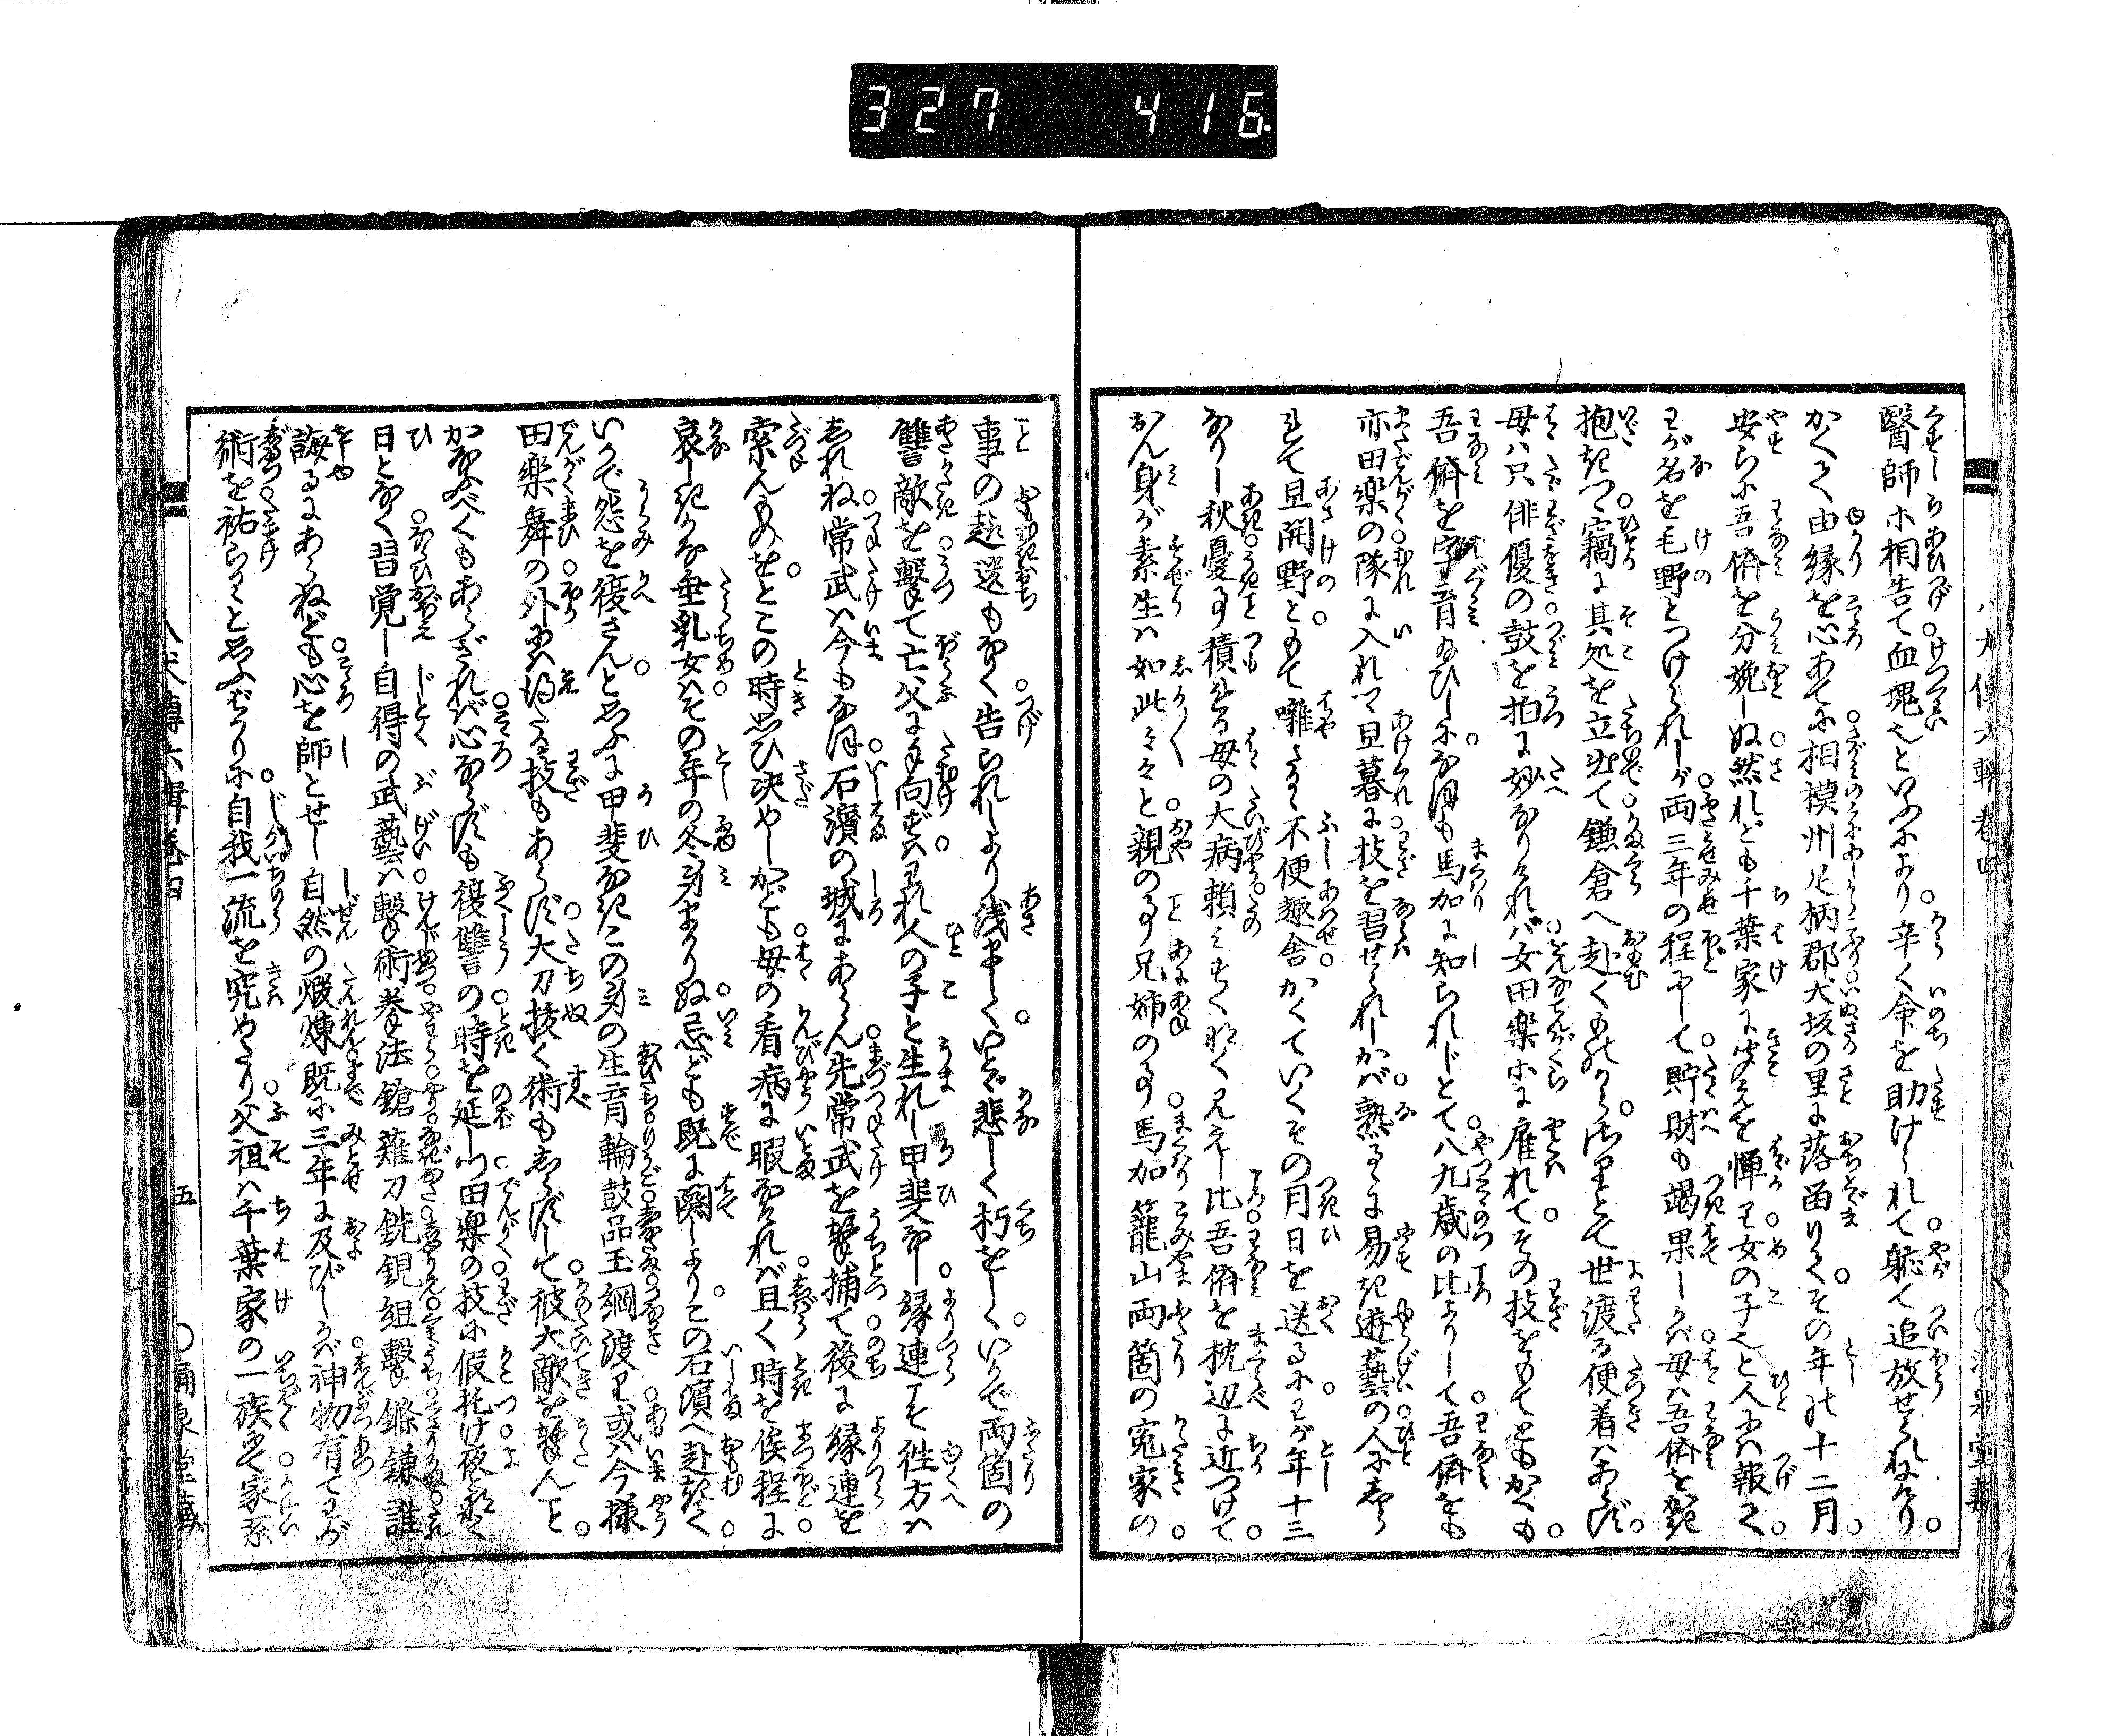 327 416
醫師ホ相告て血塊也といふにより辛く命を助けられて躯て追放せられにけり
かくて由縁を心あてに相模州足柄郡犬坂の里に落留りてその年の十二月
安らに吾儕を分娩しぬ然れども千葉家に聞えを憚り女の子也と人には報て
わが名を毛野とつけられしが両三年の程にして貯財も竭果しかば母は吾儕を掻
抱きつつ竊に其処を立出て鎌倉へ赴くものから知るよしとて世渡る便着はあらず
母は只俳優の鼓を拍に妙なりければ女田樂ホに雇れてその技をもてともかくも
吾儕を字育ひしになほも馬加に知られじとて八九歳の比よりして吾儕をも
亦田樂の隊に入れつつ旦暮に技を習せられしかば熟るるに易き遊藝の人にしら
れて旦開野ともて囃さるる不便趣舎かくていくその月日を送るにわが年十三
なりし秋憂事積る母の大病頼みすくなく見えし比吾儕を枕辺に近つけて
おん身が素生は如此々々と親の事兄姉の事馬加籠山両箇の寃家の
事の趣送もなく告られしより浅ましくいとど悲しく朽をしくいかで両箇の
讐敵を撃て亡父に手向ずはわれ人の子と生れし甲斐なし縁連は徃方は
しれね常武は今もなほ石濱の城にあらん先常武を撃捕て後に縁連を
索んものをとこの時思ひ決めしかども母の看病に暇なければ且く時を俟程に
哀しきかな垂乳女はその年の冬身まかりぬ忌ども既に闋しよりこの石濱へ赴きて
いかで怨を復さんと思ふに甲斐なきこの身の生育輪鼓品玉綱渡り或は今様
田樂舞の外には得たる技もあらず大刀抜く術もしらずして彼大敵を撃んこと
かなふべくもあらざれば心ならずも復讐の時を延しつつ田樂の技に假托け夜
日となく習覚し自得の武藝は撃術拳法鎗薙刀銑鋧組撃鏁鎌誰
誨るにあらねども心を師とせし自然の煅煉既に三年に及びしかば神物有てわが
術を祐らると思ふばかりに自我一流を究めたり父祖は千葉家の一族にて家系
八犬傳六輯巻四 五 ○涌泉堂藏